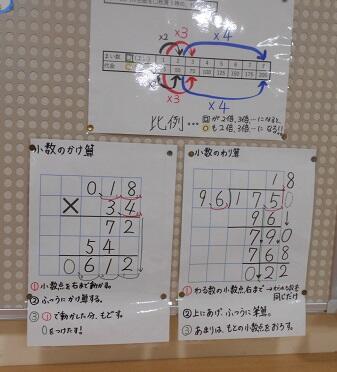 ×2 ×3 ×4
まい数 1 2 3 4 5 6 7 8
代金 25 50 75 100 125 150 175 200
×2 ×3 ×4
比例… □が2倍、3倍…になると、
○も2倍、3倍…になる!!
小数のかけ算
0.18
× 3.4
72
54
0.612
①小数点を右まで動かす。
②ふつうにかけ算する。
③①で動かした分、もどす。
0をつけたす!
小数のわり算
1.8
9.6 17.50
96
790
768
0.22
①わる数の小数点、右まで→わられる数も
同じだけ
②上にあげ、ふつうに筆算。
③あまりは、もとの小数点をおろす。